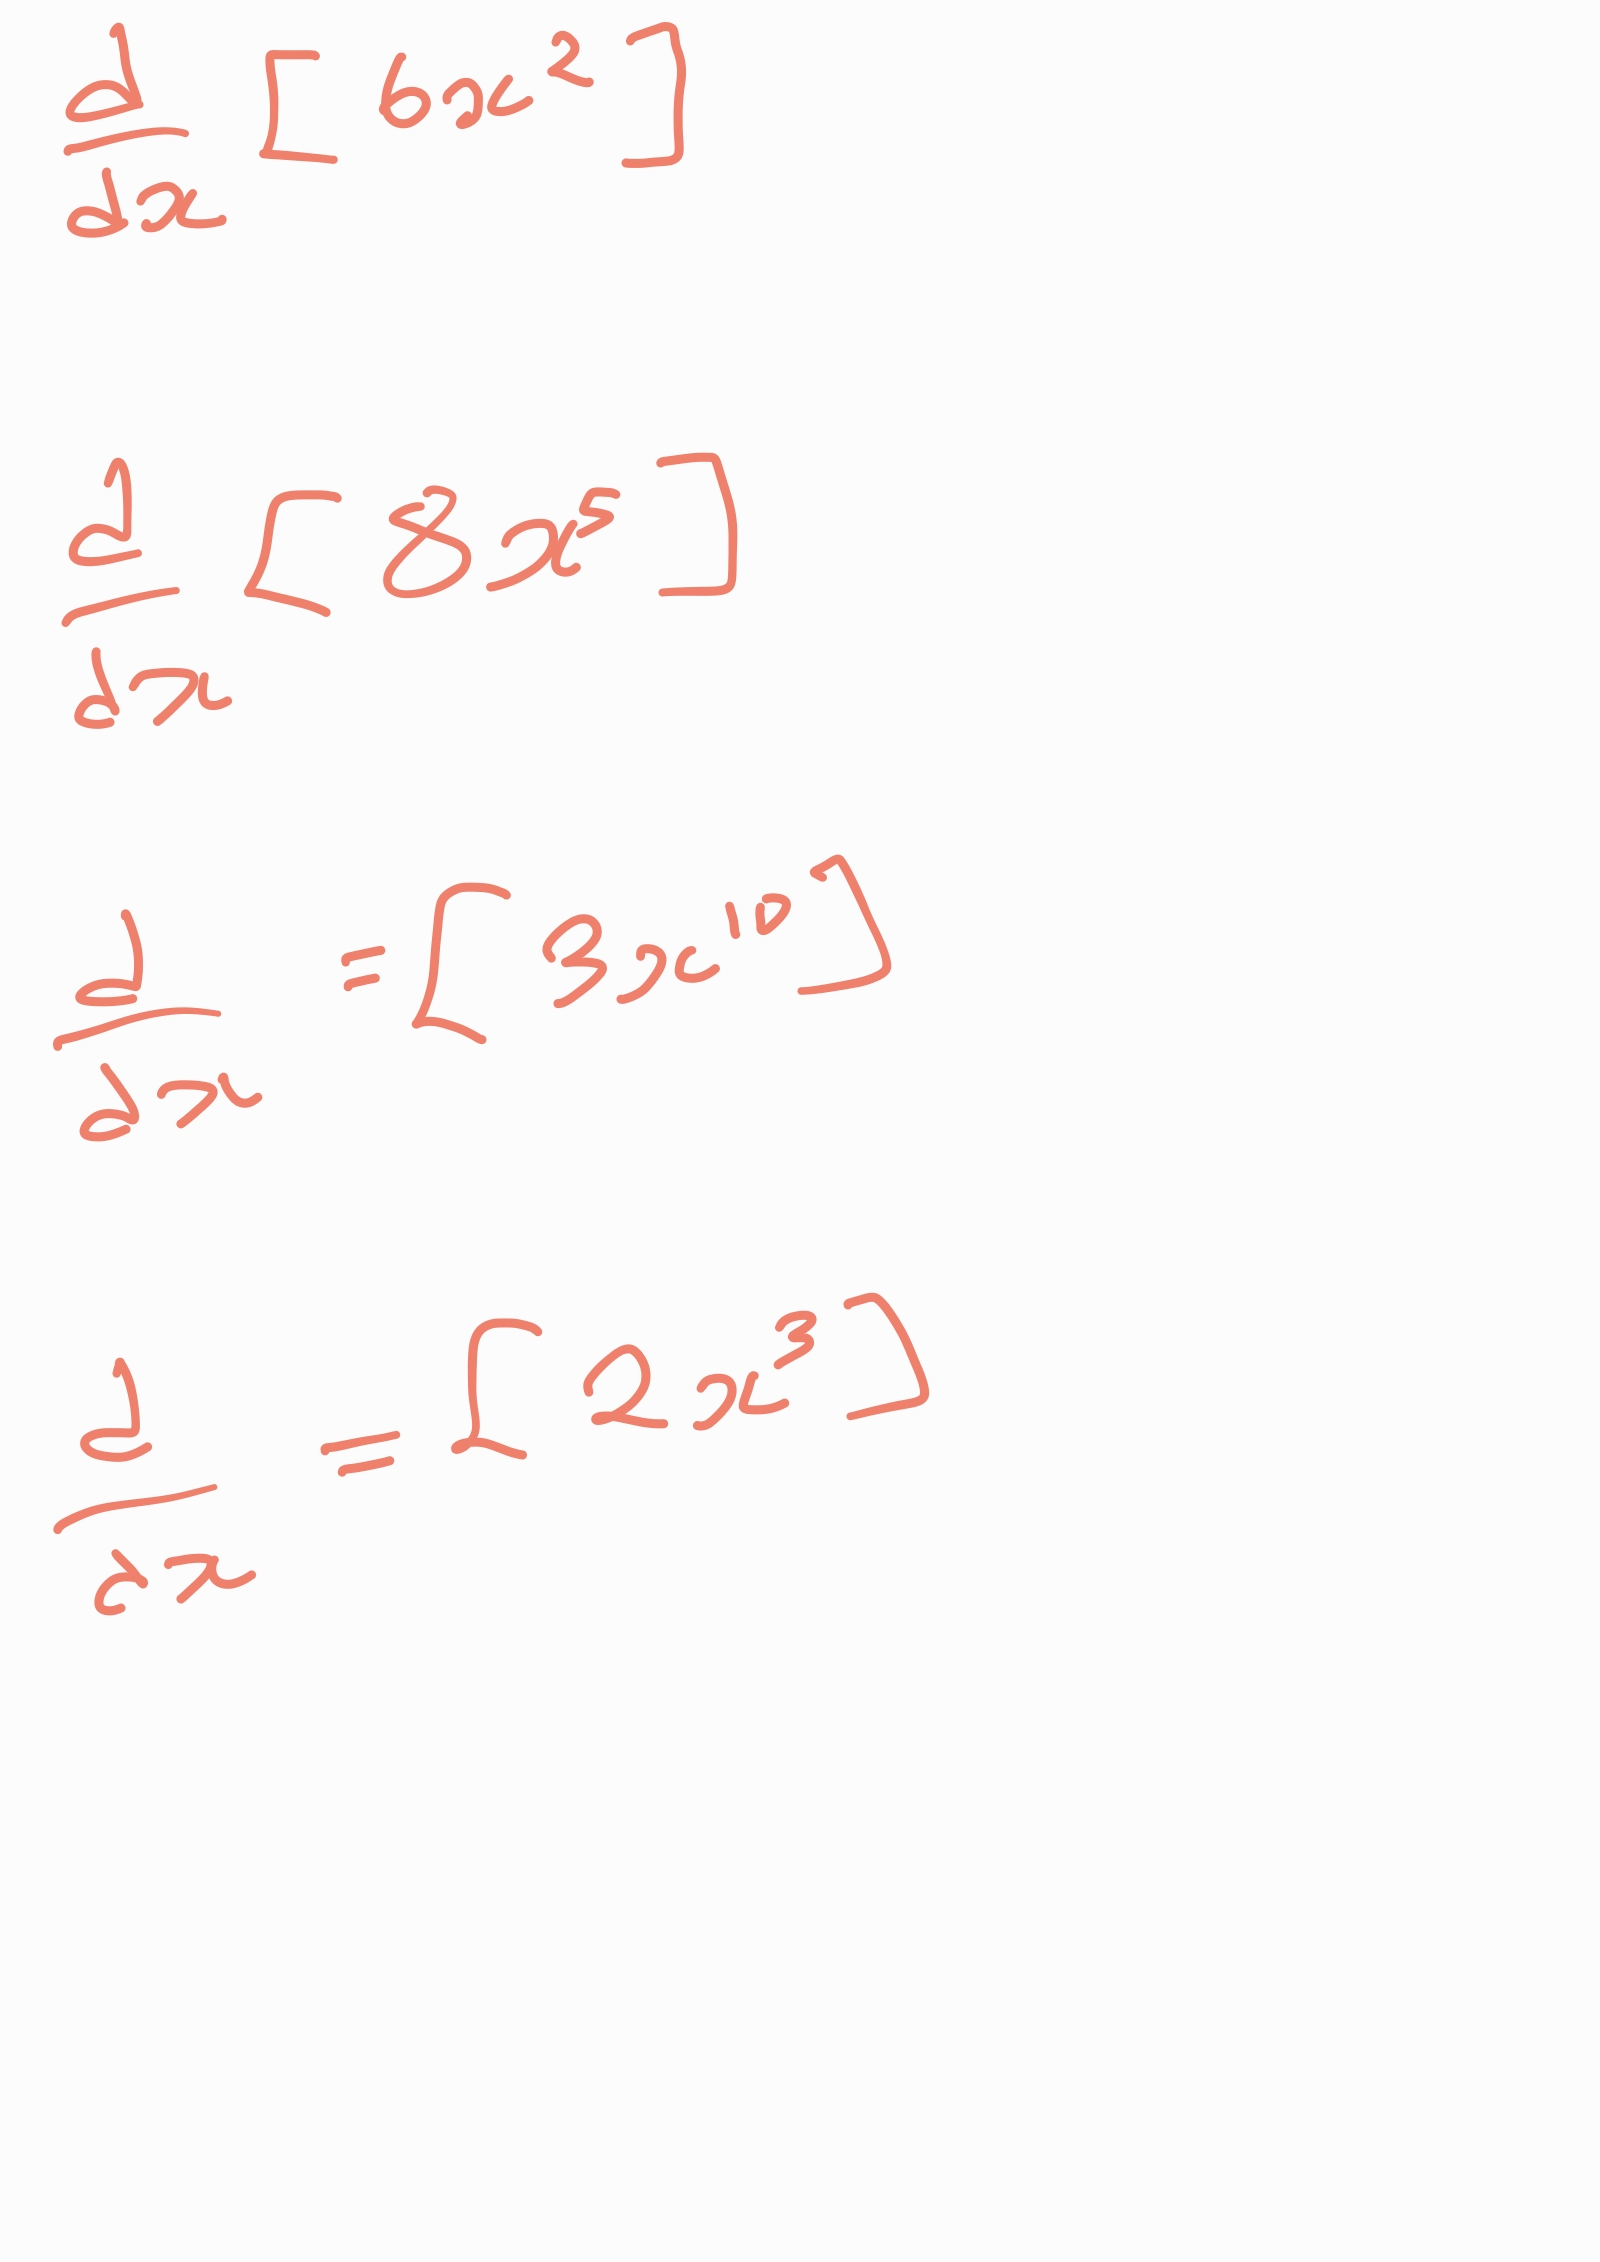 d/dx [6x²]
d/dx [8x⁵]
d/dx = [3x¹⁰]
d/dx = [2x³]